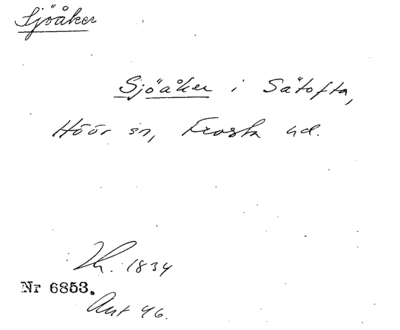 Sjöåker
Sjöåker i Sätofta,
Höör sn, Frosta hd.
Lh. 1834
Nr 6853.
Ant 46.